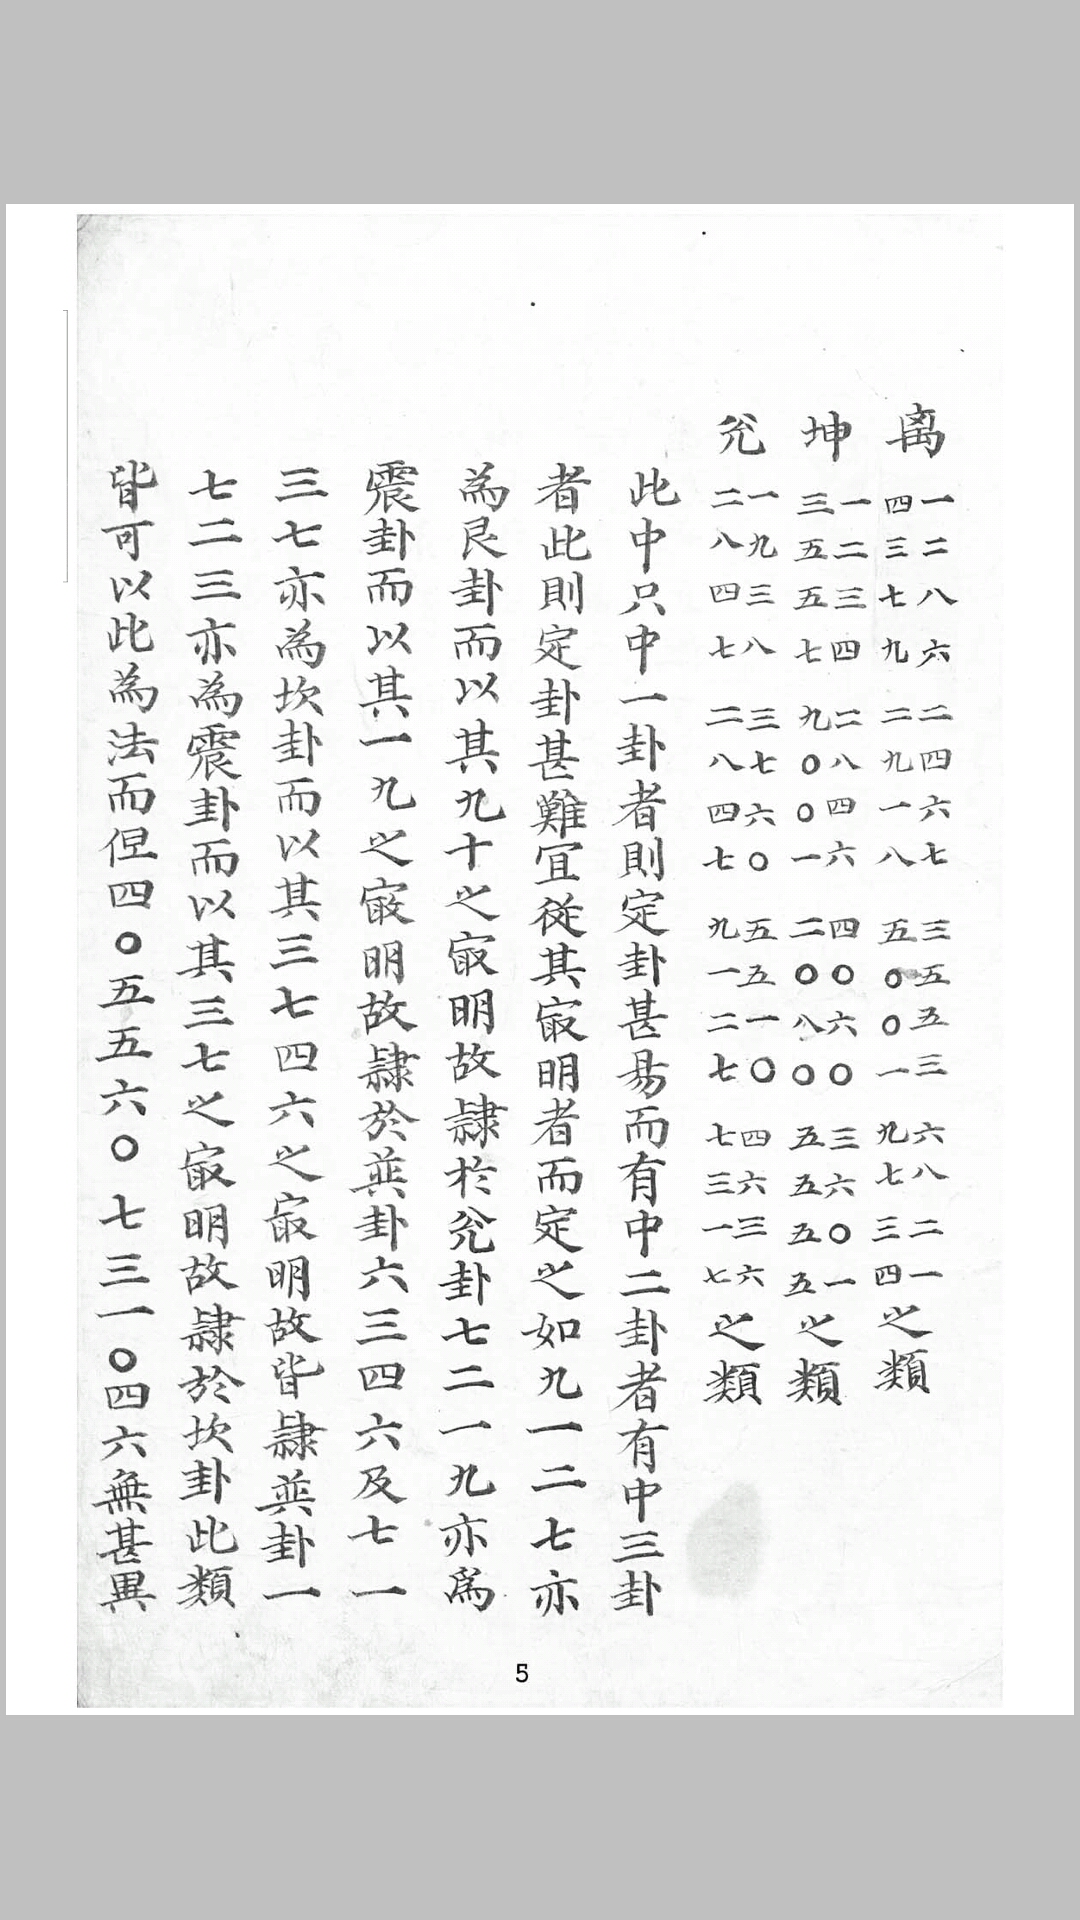 离 一二八六 二四六七 三五五三 六八二一
四三七九 二九一八 五〇〇一 九七三四之類
坤 一二三四 二八四六 四〇六〇 三六〇一
三五五七 九〇〇一 二〇八〇 五五五五之類
兊 一九三八 三七六〇 五五一〇 四六三六
二八四七 二八四七 九一二七 七三一七之類
此中只中一卦者則定卦甚易而有中二卦者有中三卦
者此則定卦甚難冝從其㝡明者而定之如九一二七亦
為艮卦而以其九十之㝡明故隷於兊卦七二一九亦爲
震卦而以其一九之㝡明故隷於巽卦六三四六及七一
三七亦為坎卦而以其三七四六之㝡明故皆隷巽卦一
七二三亦為震卦而以其三七之㝡明故隷於坎卦此類
皆可以此為法而但四〇五五六〇七三一〇四六無甚異
5